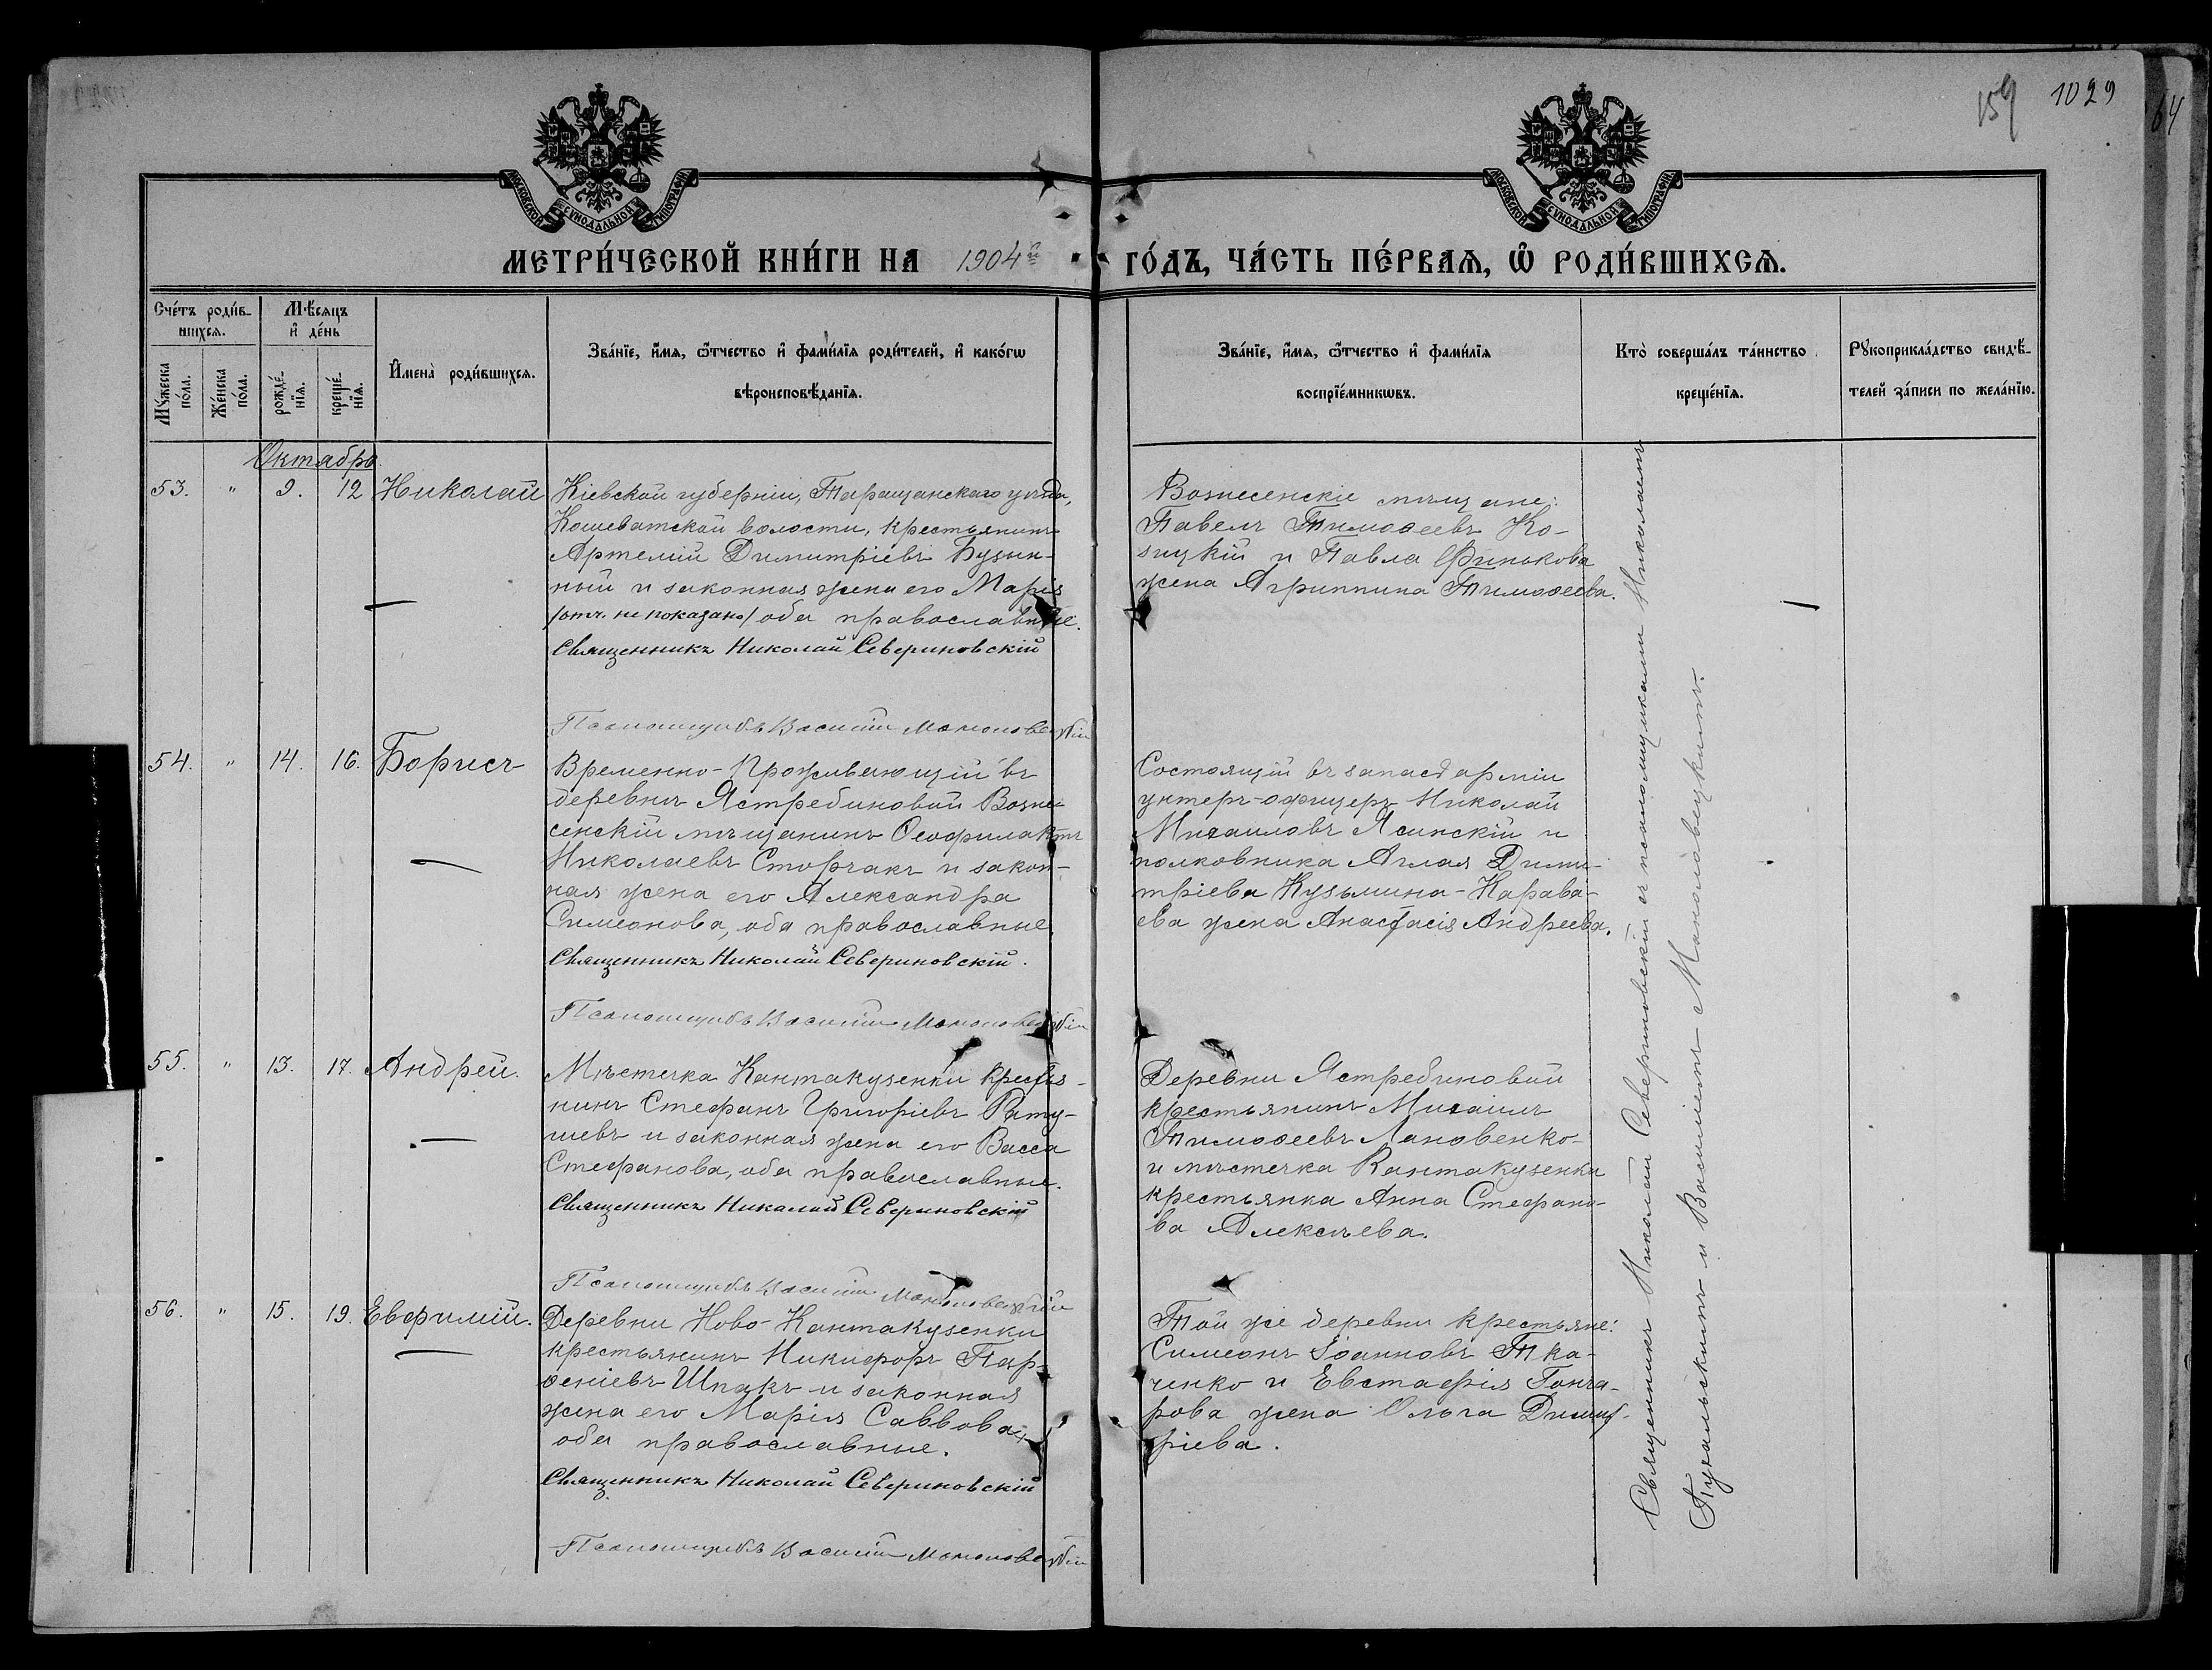 159 1029 64
МОСКОВСКОЙ СУНОДАЛЬНОЙ ТИПОГРАФІИ
МОСКОВСКОЙ СУНОДАЛЬНОЙ ТИПОГРАФІИ
МЕТРИ́ЧЕСКОЙ КНИ́ГИ НА 1904й
ГО́ДЪ, ЧА́СТЬ ПЕ́РВАѦ, Ѽ РОДИ́ВШИХСѦ.
Сче́тъ роди́в-
шихсѧ.
Мꙋ́жеска
по́ла.
Же́нска
по́ла.
Мѣ́сѧцъ
и҆ де́нь
рожде́-
нїѧ.
креще́-
нїѧ.
И҆мена̀ роди́вшихсѧ.
Зва́нїе, и҆́мѧ, ѻ҆́тчество и҆ фами́лїѧ роди́телей, и҆ како́гѡ
вѣроисповѣ́данїѧ.
Зва́нїе, и҆́мѧ, ѻ҆́тчество и҆ фами́лїѧ
воспрїе́мникѡвъ.
Кто̀ соверша́лъ та́инство
креще́нїѧ.
Рꙋкоприкла́дство свидѣ́-
телей за́писи по жела́нїю.
Октябрь
53. " 9. 12 Николай
Кіевской губерніи, Таращанскаго уѣзда,
Кошеватской волости, крестьянинъ
Артемій Димитріевъ Бузын-
ный и законная жена его Марія
/отч. не показано/ оба православные.
Священникъ Николай Севериновскій
Псаломщикъ Василій Маноловецкій
Вознесенскіе мѣщане:
Павелъ Тимоѳеевъ Ко-
зицкій и Павла Финькова
жена Агриппина Тимоѳеева.
54. " 14. 16. Борисъ
Временно-проживающій въ
деревнѣ Ястребиновой Возне-
сенскій мѣщанинъ Ѳеофилактъ
Николаевъ Сторчакъ и закон-
ная жена его Александра
Симеонова, оба православные.
Священникъ Николай Севериновскій.
Псаломщикъ Василій Маноловецкій
Состоящій въ запасѣ арміи
унтеръ-офицеръ Николай
Михаиловъ Ясинскій и
полковника Аглая Дими-
тріева Кузьмина-Карава-
ева жена Анастасія Андреева.
55. " 13. 17. Андрей.
Мѣстечка Кантакузенки кресья-
нинъ Стефанъ Григоріевъ Рату-
шевъ и законная жена его Васса
Стефанова, оба православные.
Священникъ Николай Севериновскій
Псаломщикъ Василій Маноловецкій
Деревни Ястребиновой
крестьянинъ Михаилъ
Тимоѳеевъ Лановенко
и мѣстечка Кантакузенки
крестьянка Анна Стефано-
ва Алексѣева.
56. " 15. 19. Евфимій.
Деревни Ново-Кантакузенки
крестьянинъ Никифоръ Пар-
ѳеніевъ Шпакъ и законная
жена его Марія Саввова,
оба православные.
Священникъ Николай Севериновскій
Псаломщикъ Василій Маноловецкій
Той же деревни крестьяне:
Симеонъ Іоанновъ Тка-
ченко и Евстафія Гонча-
рова жена Ольга Димит-
ріева.
Священникъ Николай Севериновскій съ псаломщиками Николаемъ
и Василіемъ Маноловецкимъ.